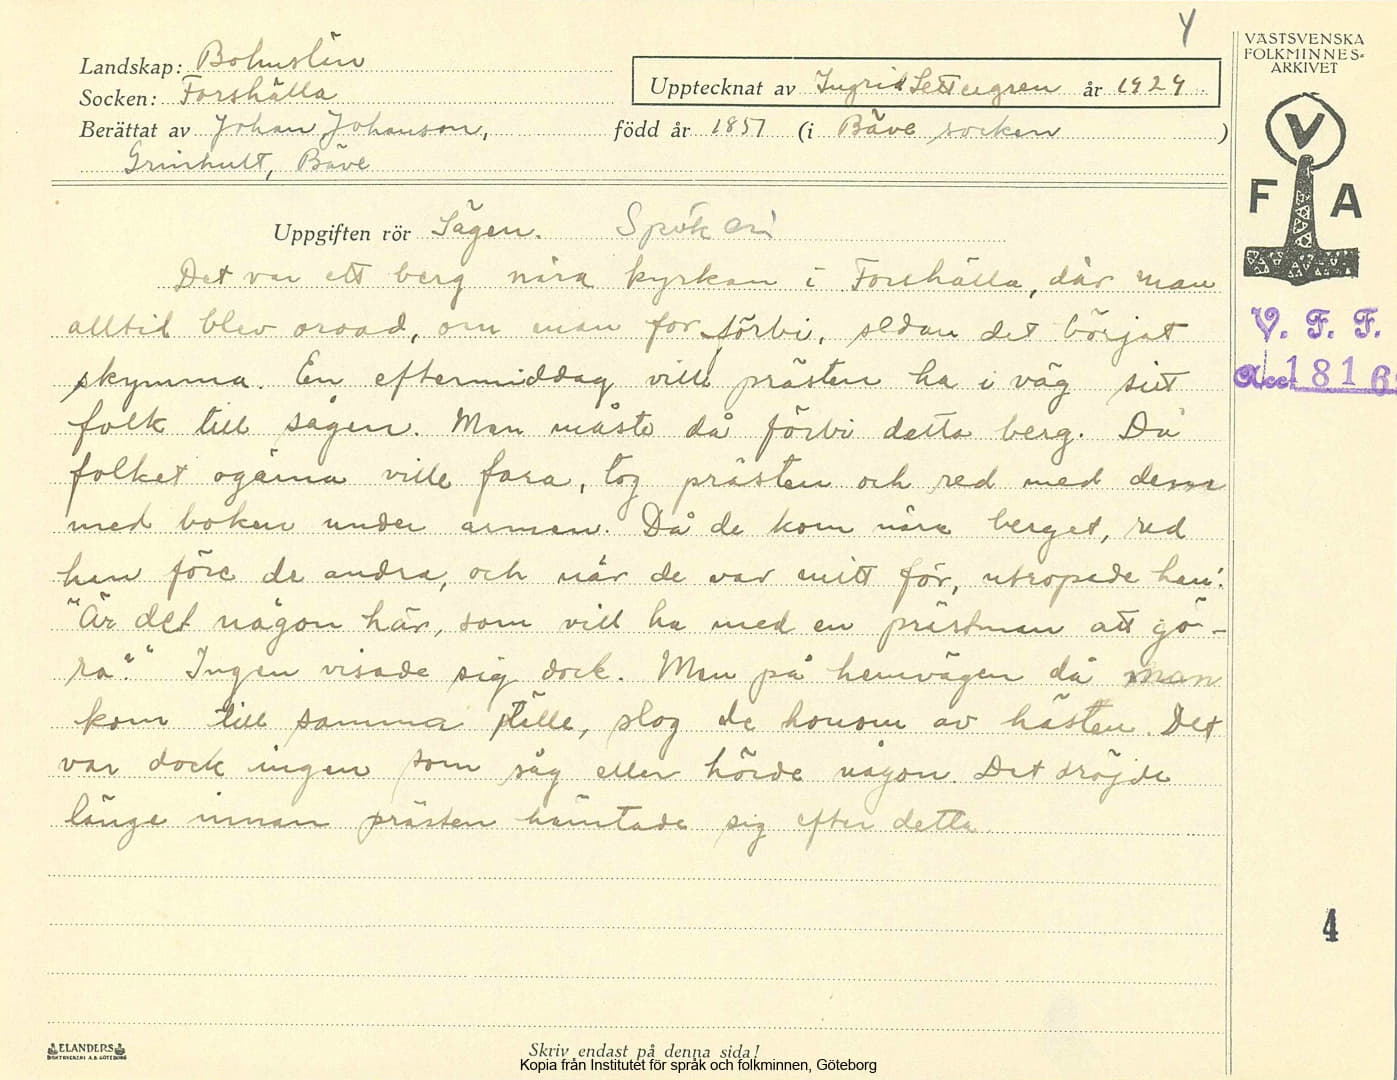 4
Landskap: Bohuslän
Socken: Forshälla
Upptecknat av Ingrid Settergren år 1929
Berättat av Johan Johanson, född år 1857 (i Bäve socken )
Grinhult, Bäve
VÄSTSVENSKA
FOLKMINNES-
ARKIVET
V
F A
V. F. F.
Acc. 1816
Uppgiften rör Sägen. Spökeri
Det var ett berg nära kyrkan i Forshälla, där man
alltid blev oroad, om man for förbi, sedan det börjat
skymma. En eftermiddag ville prästen ha i väg sitt
folk till sågen. Man måste då förbi detta berg. Då
folket ogärna ville fara, tog prästen och red med dem
med boken under armen. Då de kom nära berget, red
han före de andra, och när de var mitt för, utropade han:
"Är det någon här, som vill ha med en prästman att gö-
ra?" Ingen visade sig dock. Men på hemvägen då man
kom till samma ställe, slog de honom av hästen. Det
var dock ingen som såg eller hörde någon. Det dröjde
länge innan prästen hämtade sig efter detta.
4
ELANDERS
BOKTRYCKERI A.B. GÖTEBORG
Skriv endast på denna sida!
Kopia från Institutet för språk och folkminnen, Göteborg